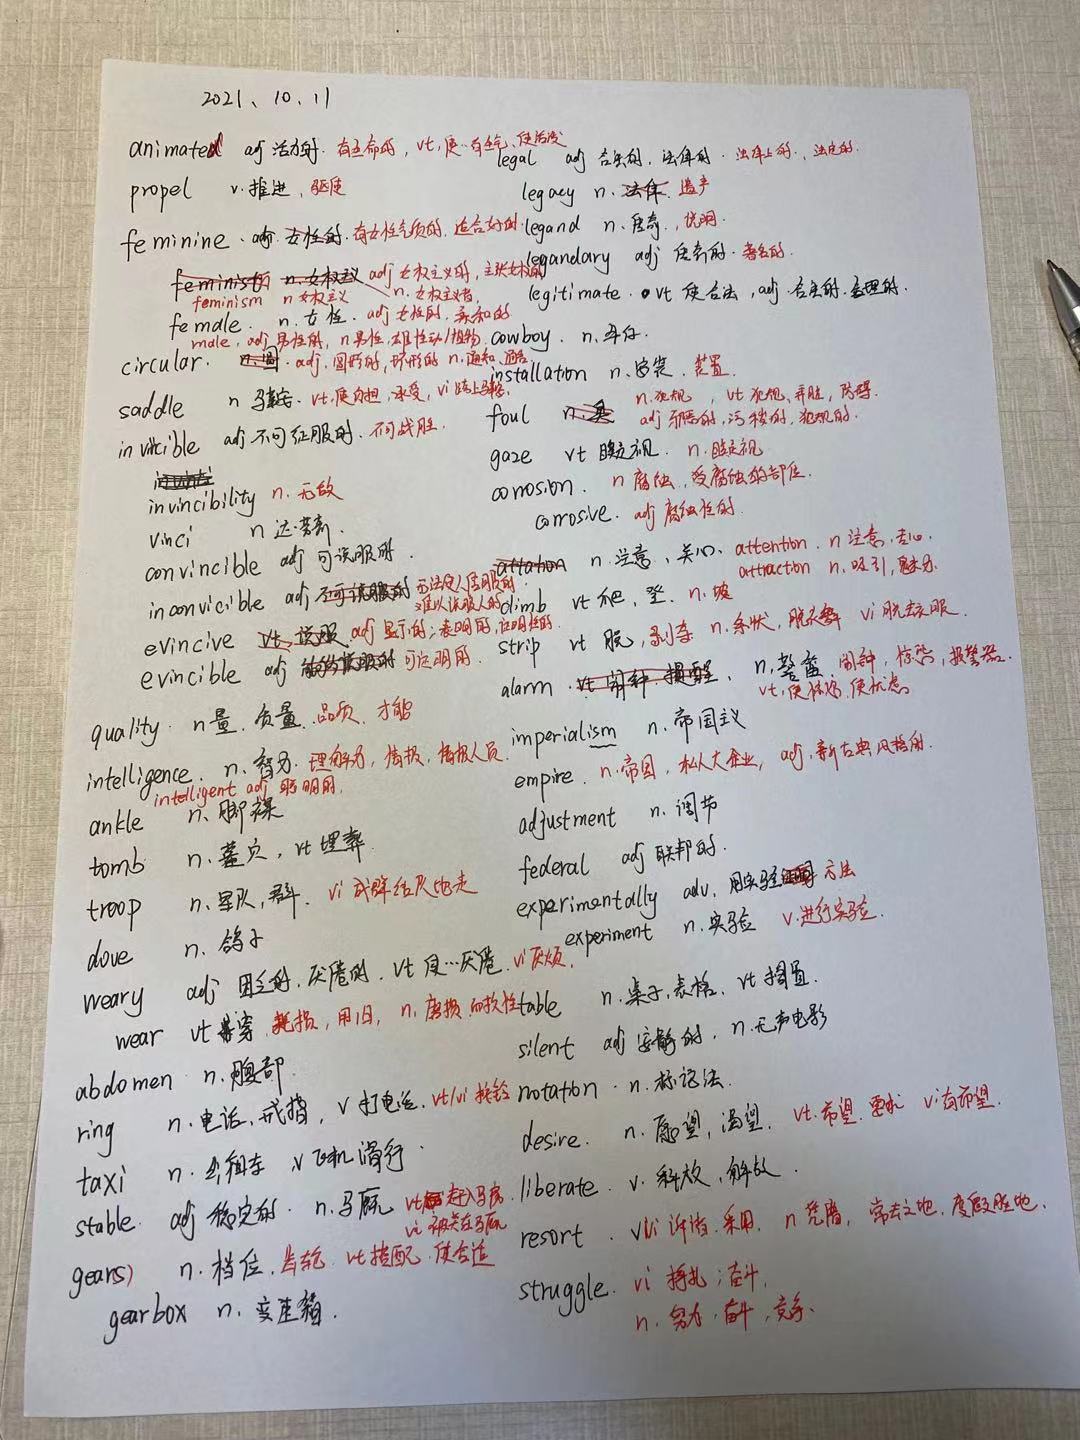 2021、10、11
animated adj 活力的. 有生命的, vt, 使…有生气、使活泼
propel v. 推进, 驱使
feminine. adj. 女性的. 有女性气质的, 适合女的.
feminist n. 女权主义 adj 女权主义的, 主张女权的
feminism n 女权主义 n. 女权主义者,
female. n. 女性. adj 女性的
male, adj 男性的, n 男性, 雄性动/植物
circular. n. 圆. adj. 圆形的, 环形的 n. 通知,
saddle n 马鞍, vt, 使负担, 承受, vi 跨上马鞍.
invincible adj 不可征服的. 不可战胜.
invincibility n. 无敌
vinci n 达·芬奇.
convincible adj 可说服的.
inconvicible adj 不可说服的 无法使人信服的 难以说服人的
evincive vt. 说服 adj 显示的; 表明的, 证明性的.
evincible adj 可证明的.
quality. n 量. 质量. 品质. 才能
intelligence. n. 智力. 理解力, 情报, 情报人员.
intelligent adj 聪明的,
ankle n. 脚裸
tomb n. 墓穴, vt 埋葬.
troop n. 军队, 群. vi 成群结队地走
dove n. 鸽子
weary adj 困乏的, 厌倦的. vt 使…厌倦. vi 厌烦.
wear vt 穿 耗损, 用旧, n. 磨损 耐软性
abdomen n. 腹部.
ring n. 电话, 戒指, v 打电话, vt/vi 按铃
taxi n. 出租车 v 飞机滑行.
stable. adj 稳定的. n. 马厩 vt 赶入马房.
vi 被关在马厩
gear(s) n. 档位. 齿轮 vt 搭配. 使合适
gearbox n. 变速箱.
legal adj 合法的, 法律的. 法律上的, 法定的.
legacy n. 法律 遗产
legand n. 传奇, 说明.
legandary adj 传奇的. 著名的.
legitimate. vt 使合法, adj. 合法的. 合理的.
cowboy. n. 牛仔.
installation n. 安装, 装置.
foul n. 臭 n. 犯规, vt 犯规, 弄脏, 妨碍.
adj 邪恶的, 污秽的, 犯规的.
gaze vt 瞪视. n. 瞪视
corrosion. n 腐蚀, 受腐蚀的部位.
corrosive. adj 腐蚀性的.
attation n. 注意, 关心、attention. n 注意, 关心.
attraction n. 吸引, 魅力.
climb vt 爬, 登. n. 坡
strip vt 脱, 剥夺 n. 条状, 脱衣舞 vi 脱去衣服.
alarm. vt 闹钟. 提醒, n, 警告. 闹钟, 惊恐, 报警器.
vt, 使惊恐, 使忧虑
imperialism n. 帝国主义
empire. n. 帝国, 私人大企业, adj, 新古典风格的.
adjustment n. 调节
federal adj 联邦的.
experimentally adv. 用实验 方法
experiment n. 实验 v. 进行实验.
table n. 桌子, 表格. vt 搁置.
silent adj 安静的, n. 无声电影
notation. n. 标记法.
desire. n. 愿望, 渴望. vt. 希望. 要求 vi 有希望.
liberate. v. 释放, 解放.
resort. v/vi 诉诸. 采用. n 凭借, 常去之地, 度假胜地.
struggle. vi 挣扎; 奋斗.
n. 努力. 奋斗, 竞争.